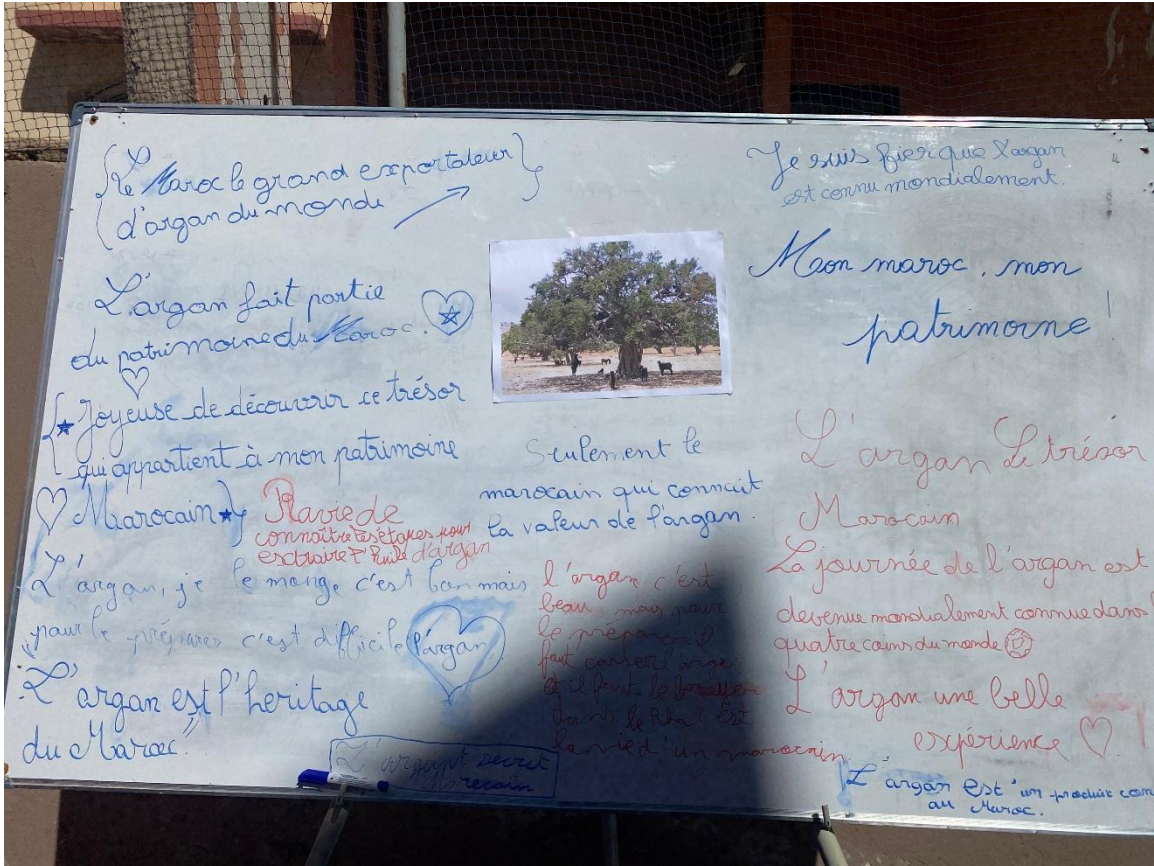 Le Maroc le grand exportateur
d'argan du monde
L'argan fait partie
du patrimoine du Maroc.
Joyeuse de découvrir ce trésor
qui appartient à mon patrimoine
Marocain
Ravie de
connaître les étapes pour
extraire l'huile d'argan
L'argan, je le mange c'est bon mais
pour le préparer c'est difficile l'argan
L'argan est l'heritage
du Maroc"
Seulement le
marocain qui connait
la valeur de l'argan.
l'argan c'est
beau mais pour
le il
faut
et il faut le
dans le Rha c'est
la vie d'un marocain.
L' secret
Je suis fier que l'argan
est connu mondialement.
Mon maroc, mon
patrimoine!
L'argan Le trésor
Marocain
La journée de l'argan est
devenue mondialement connue dans
quatre coins du monde
L'argan une belle
expérience
L'argan est un produit
au Maroc.